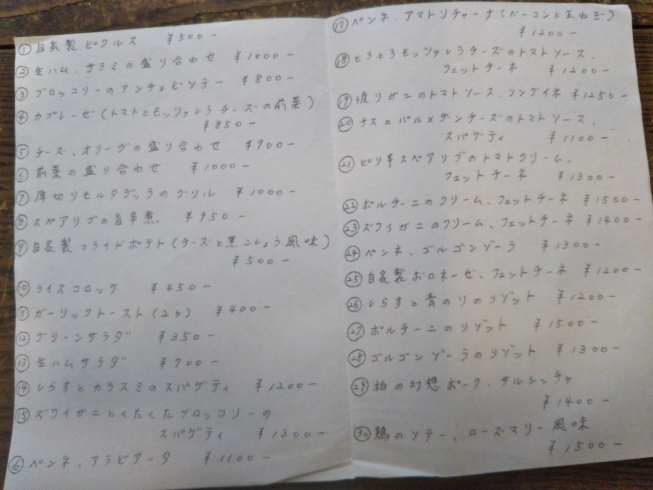 ① 自家製ピクルス ¥500-
② 生ハム、サラミの盛り合わせ ¥1000-
③ ブロッコリーのアンチョビソテー ¥800-
④ カプレーゼ(トマトとモッツァレラチーズの前菜)
¥850-
⑤ チーズ、オリーヴの盛り合せ ¥900-
⑥ 前菜の盛り合わせ ¥1000-
⑦ 厚切りモルタデッラのグリル ¥1000-
⑧ スペアリブの旨辛煮 ¥950-
⑨ 自家製フライドポテト(チーズと黒こしょう風味)
¥500-
⑩ ライスコロッケ ¥450-
⑪ ガーリックトースト(2ヶ) ¥400-
⑫ グリーンサラダ ¥350-
⑬ 生ハムサラダ ¥700-
⑭ しらすとカラスミのスパゲティ ¥1200-
⑮ ズワイガニとくたくたブロッコリーの
スパゲティ ¥1300-
⑯ ペンネ、アラビアータ ¥1100-
⑰ ペンネ、アマトリチャーナ(ベーコンと玉ねぎ)
¥1200-
⑱ とろとろモッツァレラチーズのトマトソース、
フェットチーネ ¥1200-
⑲ 渡りガニのトマトソース、リングイネ ¥1250-
⑳ ナスとパルメザンチーズのトマトソース、
スパゲティ ¥1100-
㉑ ピリ辛スペアリブのトマトクリーム、
フェットチーネ ¥1300-
㉒ ポルチーニのクリーム、フェットチーネ ¥1500-
㉓ ズワイガニのクリーム、フェットチーネ ¥1400-
㉔ ペンネ、ゴルゴンゾーラ ¥1300-
㉕ 自家製ボロネーゼ、フェットチーネ ¥1200-
㉖ しらすと青のりのリゾット ¥1200-
㉗ ポルチーニのリゾット ¥1500-
㉘ ゴルゴンゾーラのリゾット ¥1300-
㉙ 柏の幻想ポーク、サルシッチャ
¥1400-
㉚ 鶏のソテー、ローズマリー風味
¥1500-